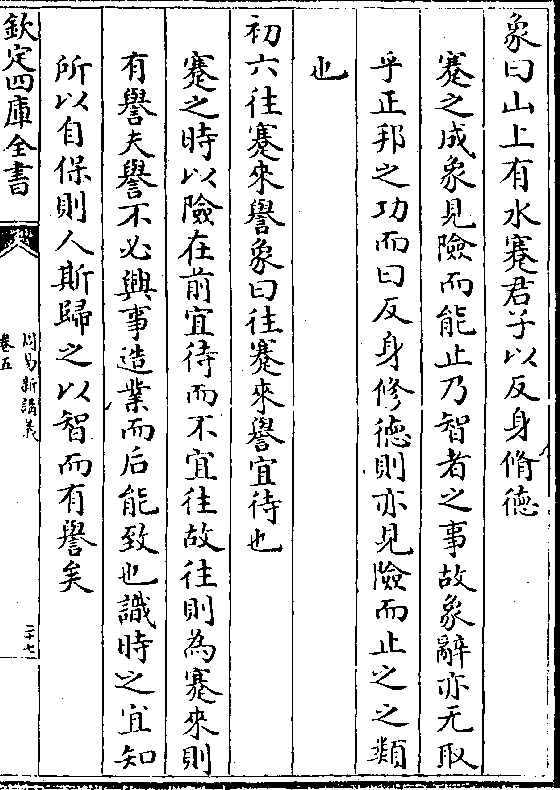 象曰山上有水蹇君子以反身脩徳
蹇之成象見險而能止乃智者之事故象辭亦无取
乎正邦之功而曰反身修徳則亦見險而止之之類
也
初六往蹇來譽象曰往蹇來譽宜待也
蹇之時以險在前宜待而不宜往故往則為蹇來則
有譽夫譽不必興事造業而后能致也識時之宜知
所以自保則人斯歸之以智而有譽矣
欽定四庫全書
周易新講義
卷五
二十七